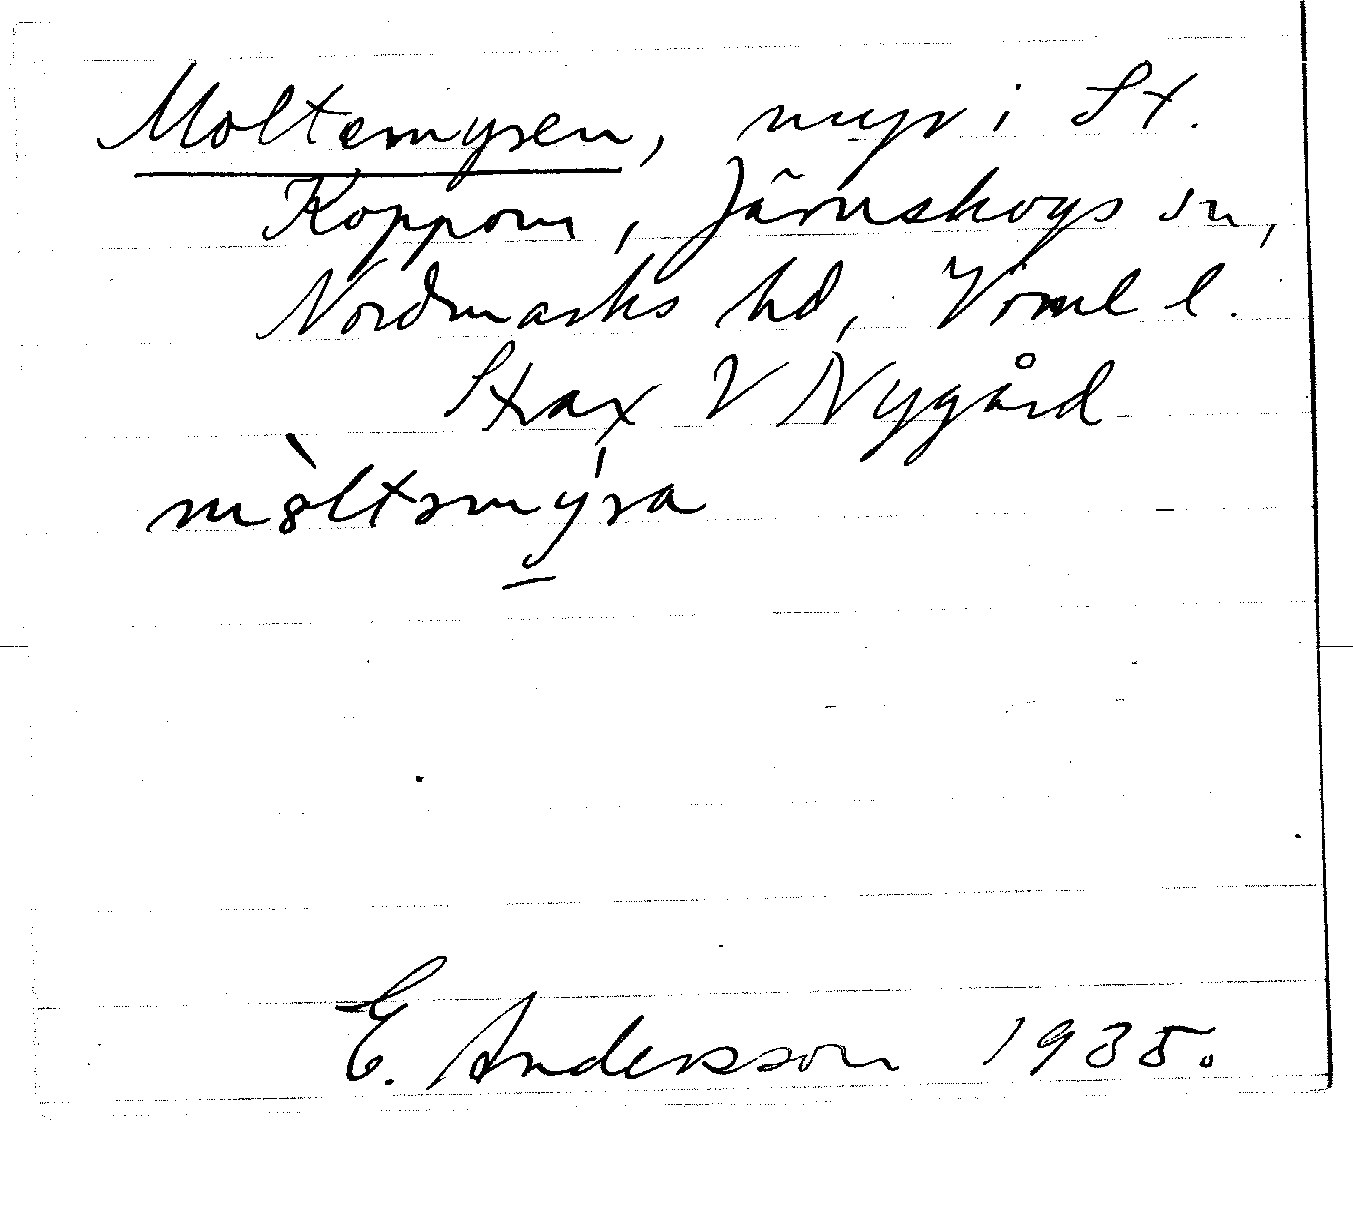 Moltemyren, myr i St.
Koppom, Järnskogs sn,
Nordmarks hd, Vörml l.
Strax V Nygård
E. Andersson 1935.